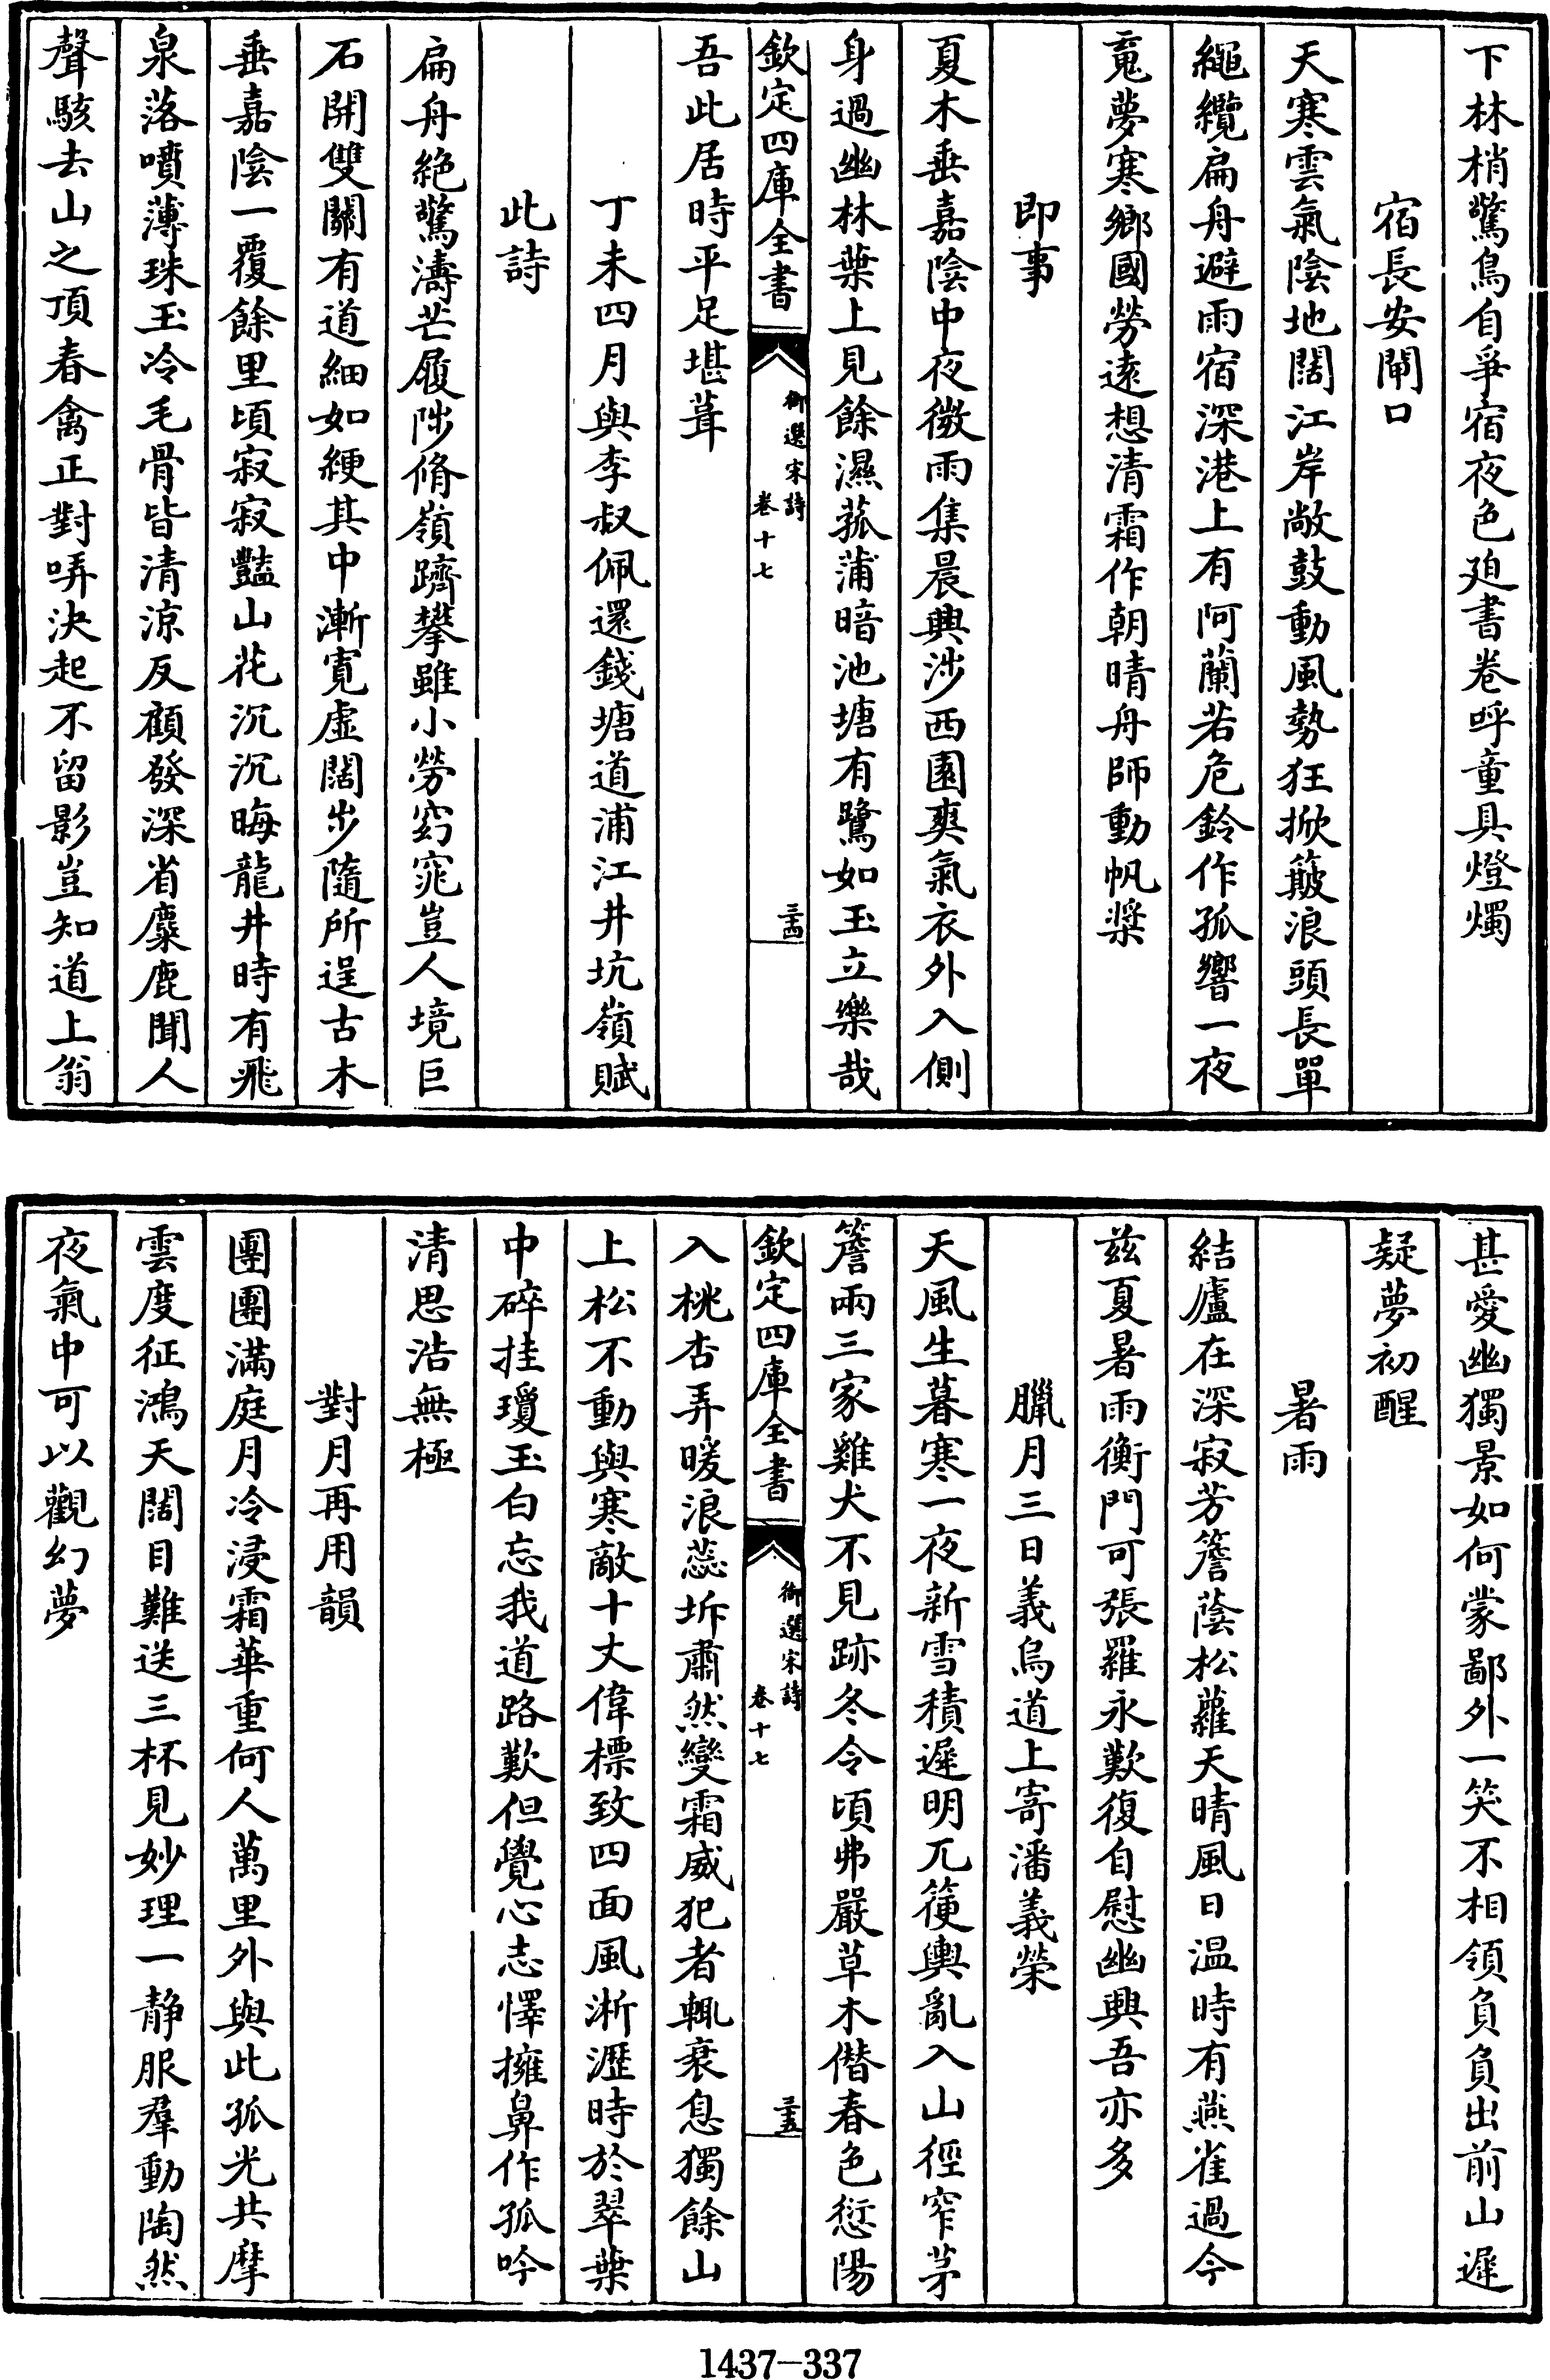 下林梢驚鳥自爭宿夜色廹書卷呼童具燈燭
宿長安閘口
天寒雲氣陰地闊江岸敞鼓動風勢狂掀簸浪頭長單
繩纜扁舟避雨宿深港上有阿蘭若危鈴作孤響一夜
䰟夢寒鄉國勞遠想清霜作朝晴舟師動帆槳
即事
夏木垂嘉陰中夜微雨集晨興涉西園爽氣衣外入側
身過幽林葉上見餘濕菰蒲暗池塘有鷺如玉立樂哉
欽定四庫全書
御選宋詩
卷十七
三四
吾此居時平足堪葺
丁未四月與李叔佩還錢塘道浦江井坑嶺賦
此詩
扁舟絶驚濤芒屨陟脩嶺躋攀雖小勞窈窕豈人境巨
石開雙闕有道細如綆其中漸寛虛闊步隨所逞古木
垂嘉陰一覆餘里頃寂寂豔山花沉沉晦龍井時有飛
泉落噴薄珠玉冷毛骨皆清涼反顧發深省麋鹿聞人
聲駭去山之頂春禽正對哢決起不留影豈知道上翁
甚愛幽獨景如何蒙鄙外一笑不相領負負出前山遲
疑夢初醒
暑雨
結廬在深寂芳簷蔭松蘿天晴風日温時有燕雀過今
兹夏暑雨衡門可張羅永歎復自慰幽興吾亦多
臘月三日義烏道上寄潘義榮
天風生暮寒一夜新雪積遲明兀箯輿亂入山徑窄茅
簷兩三家雞犬不見跡冬令頃弗嚴草木僭春色愆陽
欽定四庫全書
御選宋詩
卷十七
三五
入桃杏弄暖浪蕊坼肅然變霜威犯者輒衰息獨餘山
上松不動與寒敵十丈偉標致四面風淅瀝時於翠葉
中碎挂瓊玉白忘我道路歎但覺心志懌擁鼻作孤吟
清思浩無極
對月再用韻
團團滿庭月冷浸霜華重何人萬里外與此孤光共摩
雲度征鴻天闊目難送三杯見妙理一靜服羣動陶然
夜氣中可以觀幻夢
1437-337